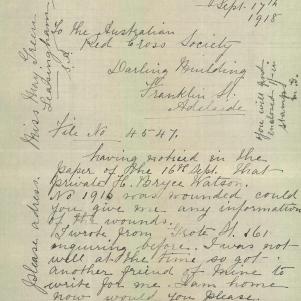 Sept. 17th
1918
To the Australian
Red Cross Society
Darling Building
Franklin St.
Adelaide
File No 4547.
having noticed in the
paper of the 16th Sept. that
private H. Bryce Watson.
No 1916 was wounded, could
you give me any information
of the wounds.
I wrote from Grote St. 161
inquiring before. I was not
well at the time so got
another friend of mine to
write for me. I am home
now would you please
Please adress. Miss May Green
S.A.
You will find
enclosed
stamps